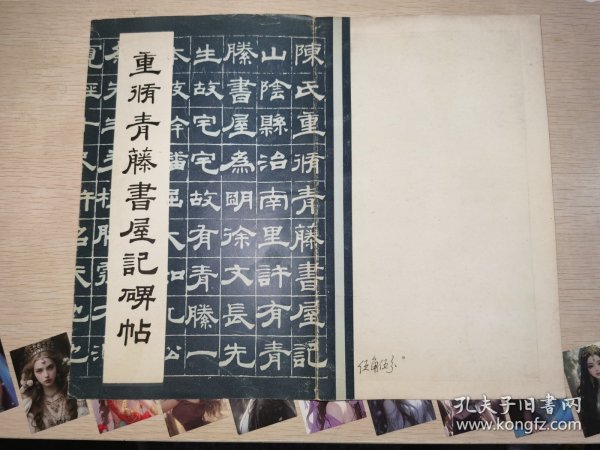 重脩青藤書屋記碑帖
陳氏重脩青藤書屋記
山陰縣治南里許有青
滕書屋為明徐文長先
生故宅宅故有青滕一
伍角伍分
孔夫子旧书网
www.kongfz.com